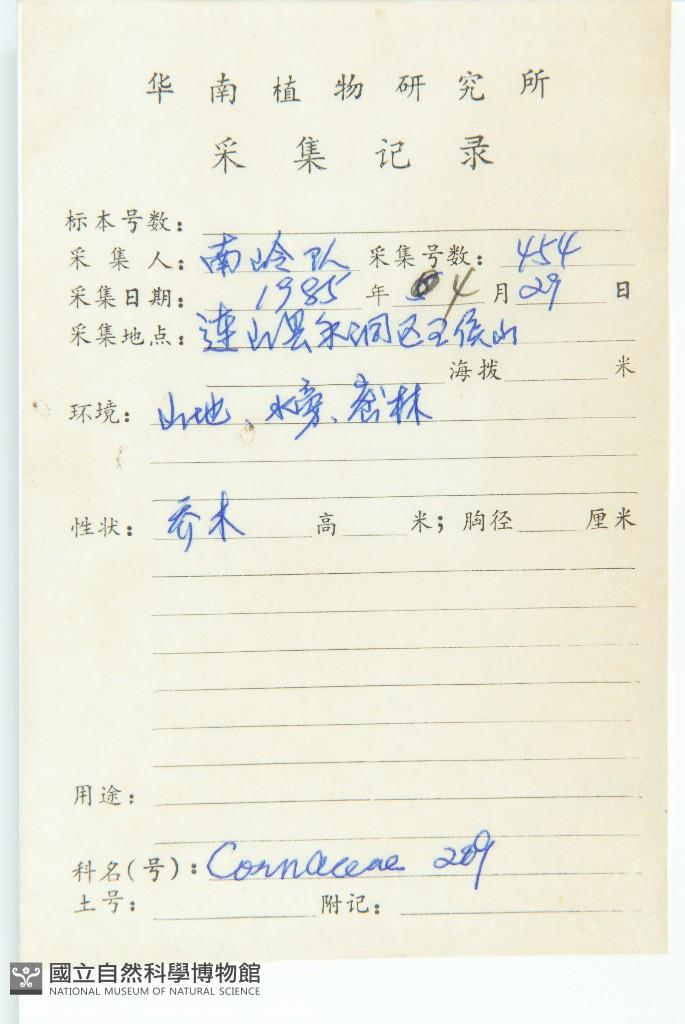 华南植物研究所
采集记录
标本号数：
采集人：南岭队 采集号数：454
采集日期：1985年 4月29日
采集地点：連山县禾洞区王侯山
海拨 米
环境：山地、水旁、密林
性状：乔木 高 米；胸径 厘米
用途：
科名(号)：Cornaceae 209
土号： 附记：
國立自然科學博物館
NATIONAL MUSEUM OF NATURAL SCIENCE